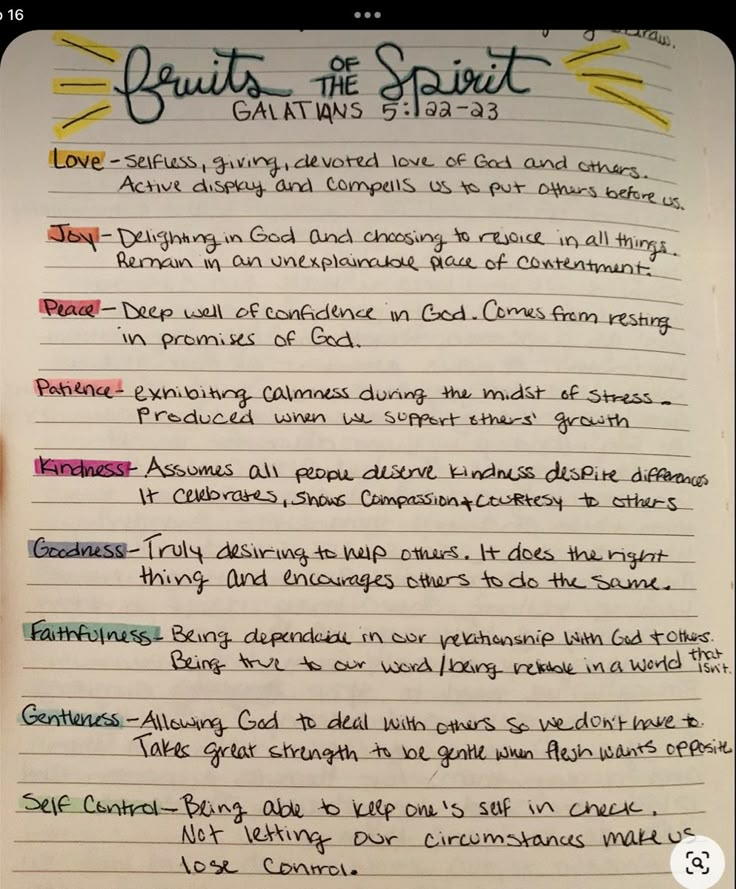 16
Draw.
Fruits OF THE Spirit
GALATIANS 5:22-23
Love - selfless, giving, devoted love of God and others.
Active display and compells us to put others before us.
Joy - Delighting in God and choosing to rejoice in all things.
Remain in an unexplainable place of contentment.
Peace - Deep well of confidence in God. Comes from resting
in promises of God.
Patience - exhibiting calmness during the midst of stress.
Produced when we support others' growth
Kindness - Assumes all people deserve kindness despite differences
It celebrates, shows compassion + courtesy to others
Goodness - Truly desiring to help others. It does the right
thing and encourages others to do the same.
Faithfulness - Being dependable in our relationship with God + others.
Being true to our word / being reliable in a world that isn't.
Gentleness - Allowing God to deal with others so we don't have to.
Takes great strength to be gentle when flesh wants opposite
Self Control - Being able to keep one's self in check.
Not letting our circumstances make us
lose control.